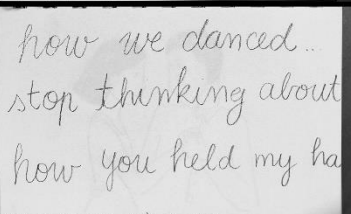 how we danced...
stop thinking about
how you held my ha